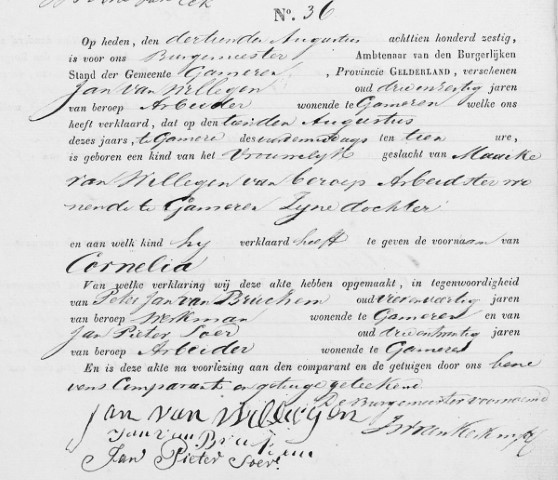 N.º 36
Op heden, den dertienden Augustus achttien honderd zestig,
is voor ons Burgemeester Ambtenaar van den Burgerlijken
Stand der Gemeente Gameren, Provincie GELDERLAND, verschenen
Jan van Willegen oud jaren
van beroep Arbeider wonende te Gameren welke ons
heeft verklaard, dat op den tienden Augustus
dezes jaars, te Gameren des voordemiddags ten tien ure,
is geboren een kind van het Vrouwelijk geslacht van Maaike
van Willegen van beroep Arbeidster wo
nende te Gameren Zyne dochter
en aan welk kind hy verklaard heeft te geven de voornaam van
Cornelia
Van welke verklaring wij deze akte hebben opgemaakt, in tegenwoordigheid
van Peter Jan van Bruchem oud jaren
van beroep Werkman wonende te Gameren en van
Jan Pieter Soer oud jaren
van beroep Arbeider wonende te Gameren
En is deze akte na voorlezing aan den comparant en de getuigen door ons bene
vens Comparant en getuige geteekend
De Burgemeester voornoemd
Jan van Willegen
Jan van Bruchem
Jan Pieter Soer